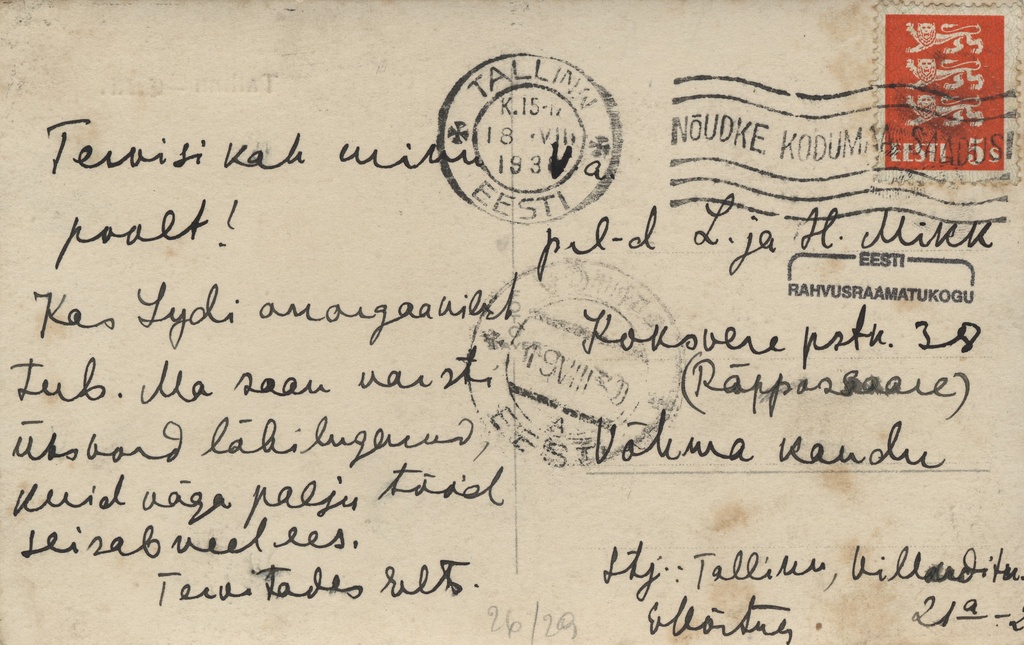 Tervisi kah minu
poolt!
Kas Lydi anorgaanilist
tub. Ma saan varsti
üksvord läbilugenud,
kuid väga palju tööd
seisab veel ees.
Tervitades
26/29
TALLINN
K.15-
18 VIII
193
EESTI
NÕUDKE KODUMAA SAADUSI
EESTI 5 s
Va
prl-d L. ja H. Mikk
EESTI
RAHVUSRAAMATUKOGU
Koksvere pstk. 38
(Räppossaare)
Võhma kaudu
19 VIII 30
A
EESTI
Stj.: Tallinn, Villardi tn.
21a-2